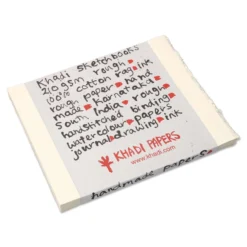 Khadi Sketchbooks
210gsm rough
100% cotton rag ink
rough paper hand
made Karnataka
South India rough
handstitched binding
watercolour papers
journal drawing ink
KHADI PAPERS
www.khadi.com
handmade papers